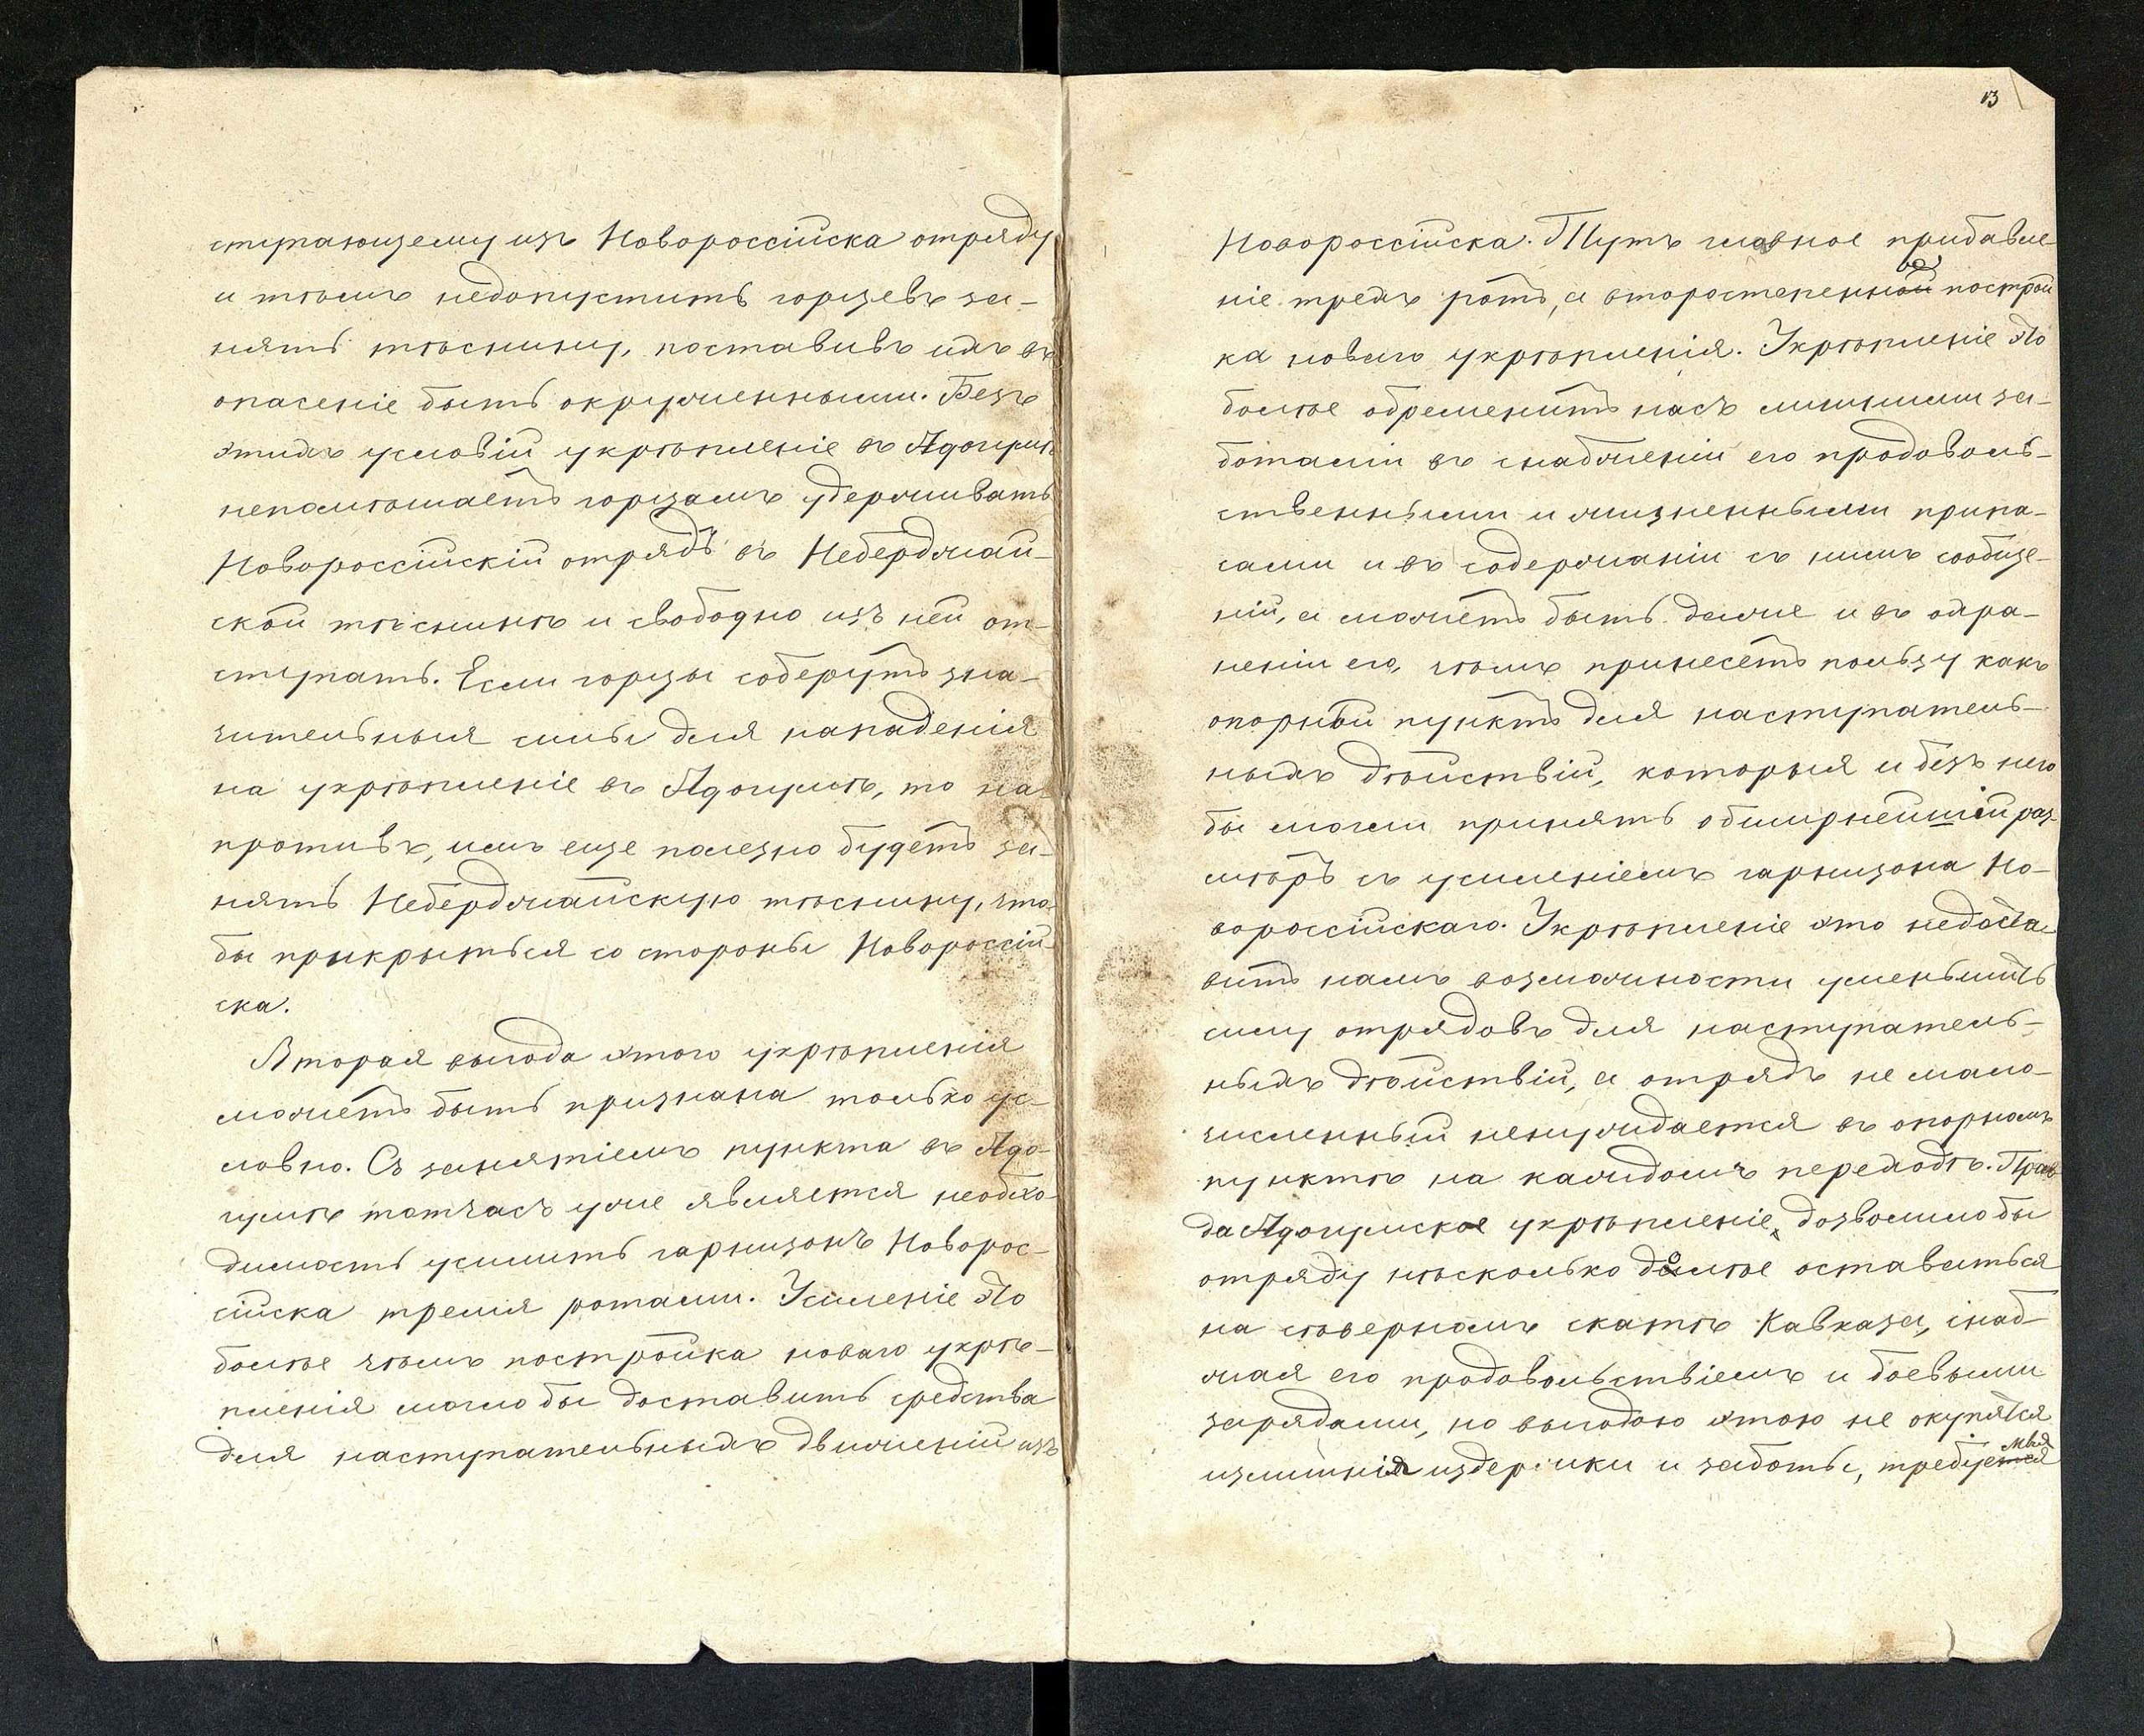 ступающему изъ Новороссійска отряду
и тѣмъ недопустить горцевъ за-
нять тѣснину, поставивъ ихъ въ
опасеніе быть окруженными. Безъ
этихъ условій укрѣпленіе въ Адагумѣ
непомѣшаетъ горцамъ удерживать
Новороссійскій отрядъ въ Неберджай-
ской тѣснинѣ и свободно изъ ней от-
ступать. Если горцы соберутъ зна-
чительныя силы для нападенія
на укрѣпленіе въ Адагумѣ, то на-
противъ, имъ еще полезно будетъ за-
нять Неберджайскую тѣснину, что-
бы прикрыться со стороны Новороссій-
ска.
Вторая выгода этого укрѣпленія
можетъ быть признана только ус-
ловно. Съ занятіемъ пункта въ Адо-
гумѣ тотчасъ уже является необхо-
димость усилить гарнизонъ Новорос-
сійска тремя ротами. Усиленіе это
болѣе чѣмъ постройка новаго укрѣ-
пленія могло бы доставить средства
для наступательныхъ движеній изъ
13
Новороссійска. Тутъ главное прибавле-
ніе трехъ ротъ, а второстепенное построй
ка новаго укрѣпленія. Укрѣпленіе это
болѣе обременитъ насъ лишними за-
ботами въ снабженіи его продоволь-
ственными и жизненными припа-
сами и въ содержаніи съ нимъ сообще-
ній, а можетъ быть даже и въ охра-
неніи его, чѣмъ принесетъ пользу какъ
опорный пунктъ для наступатель-
ныхъ дѣйствій, которыя и безъ него
бы могли принять обширнейшій раз-
мѣръ съ усиленіемъ гарнизона Но-
вороссійскаго. Укрѣпленіе это недоста-
витъ намъ возможности уменьшить
силу отрядовъ для наступатель-
ныхъ дѣйствій, а отрядъ не мало-
численный ненуждается въ опорномъ
пунктѣ на каждомъ переходѣ. Прав
да Адагумское укрѣпленіе, дозволило бы
отряду нѣсколько долѣе оставаться
на сѣверномъ скатѣ Кавказа, снаб-
жая его продовольствіемъ и боевыми
зарядами, но выгодою этою не окупятся
мыя
излишнія издержки и заботы, требуется